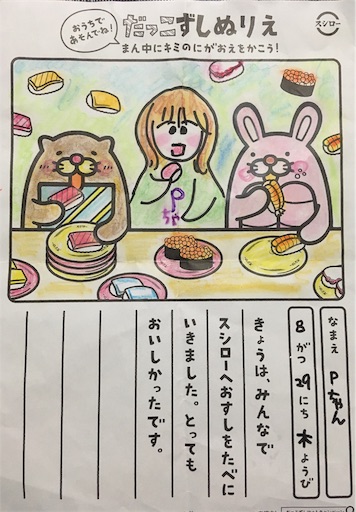 おうちで
あそんでね!
だっこずしぬりえ
まん中にキミのにがおえをかこう!
スシロー
Pちゃ
なまえ Pちゃん
8がつ29にち木ようび
きょうは、みんなで
スシローへおすしをたべに
いきました。とっても
おいしかったです。